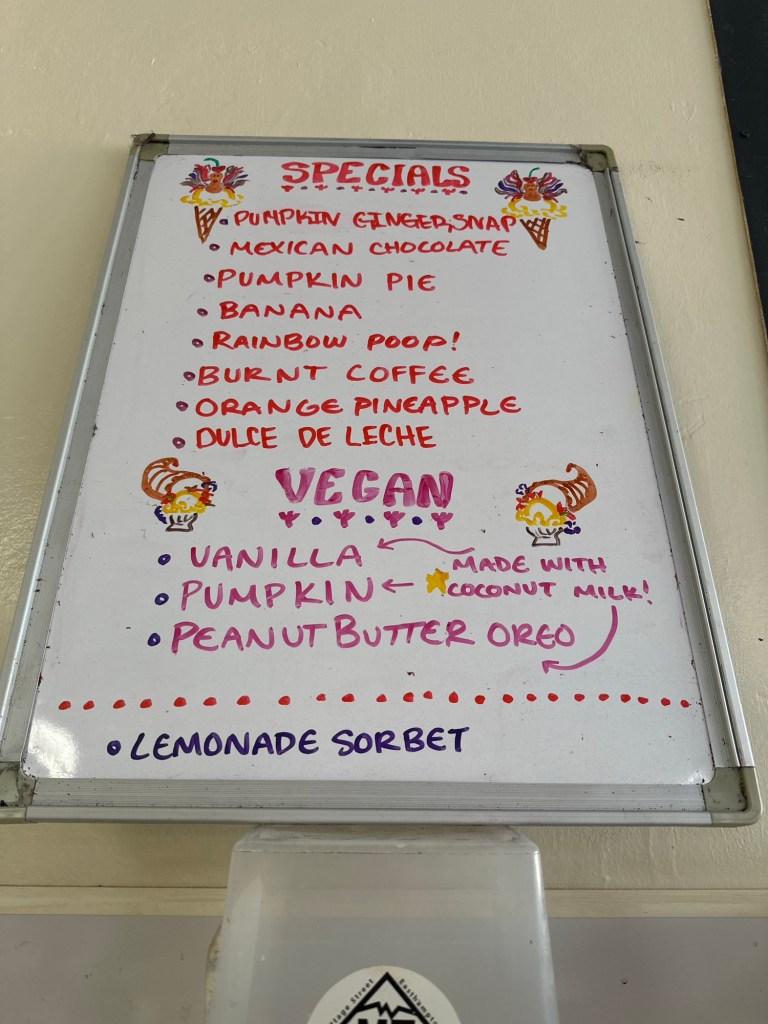 SPECIALS
PUMPKIN GINGERSNAP
MEXICAN CHOCOLATE
PUMPKIN PIE
BANANA
RAINBOW POOP!
BURNT COFFEE
ORANGE PINEAPPLE
DULCE DE LECHE
VEGAN
VANILLA
PUMPKIN
PEANUT BUTTER OREO
MADE WITH
COCONUT MILK!
LEMONADE SORBET